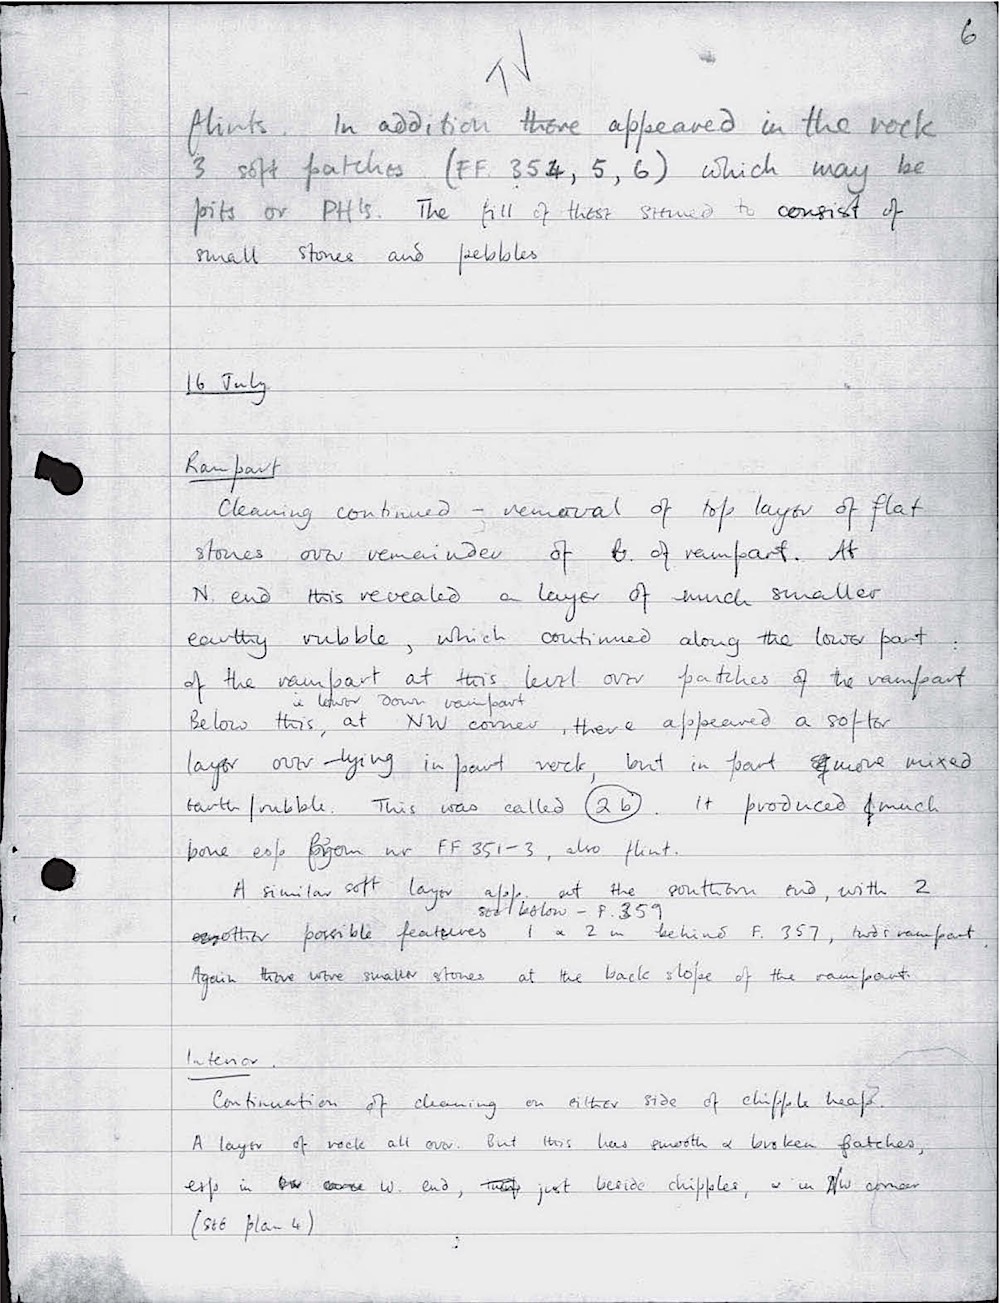 6
flints. In addition there appeared in the rock
3 soft patches (FF. 354, 5, 6) which may be
pits or PH's. The fill of these seemed to consist of
small stones and pebbles
16 July
Rampart
Cleaning continued – removal of top layer of flat
stones over remainder of b. of rampart. At
N. end this revealed a layer of much smaller
earthy rubble, which continued along the lower part
of the rampart at this level over patches of the rampart
ie lower down rampart
Below this, at NW corner, there appeared a softer
layer over-lying in part rock, but in part more mixed
earth/rubble. This was called 2b. It produced much
bone esp from nr FF 351-3, also flint.
A similar soft layer app. at the southern end, with 2
see below – F. 359
possible features 1 & 2 m behind F. 357, twds rampart.
Again there were smaller stones at the back slope of the rampart.
Interior.
Continuation of cleaning on either side of chipple heap.
A layer of rock all over. But this has smooth & broken patches,
esp in W. end, just beside chipples, & in NW corner
(see plan 4)